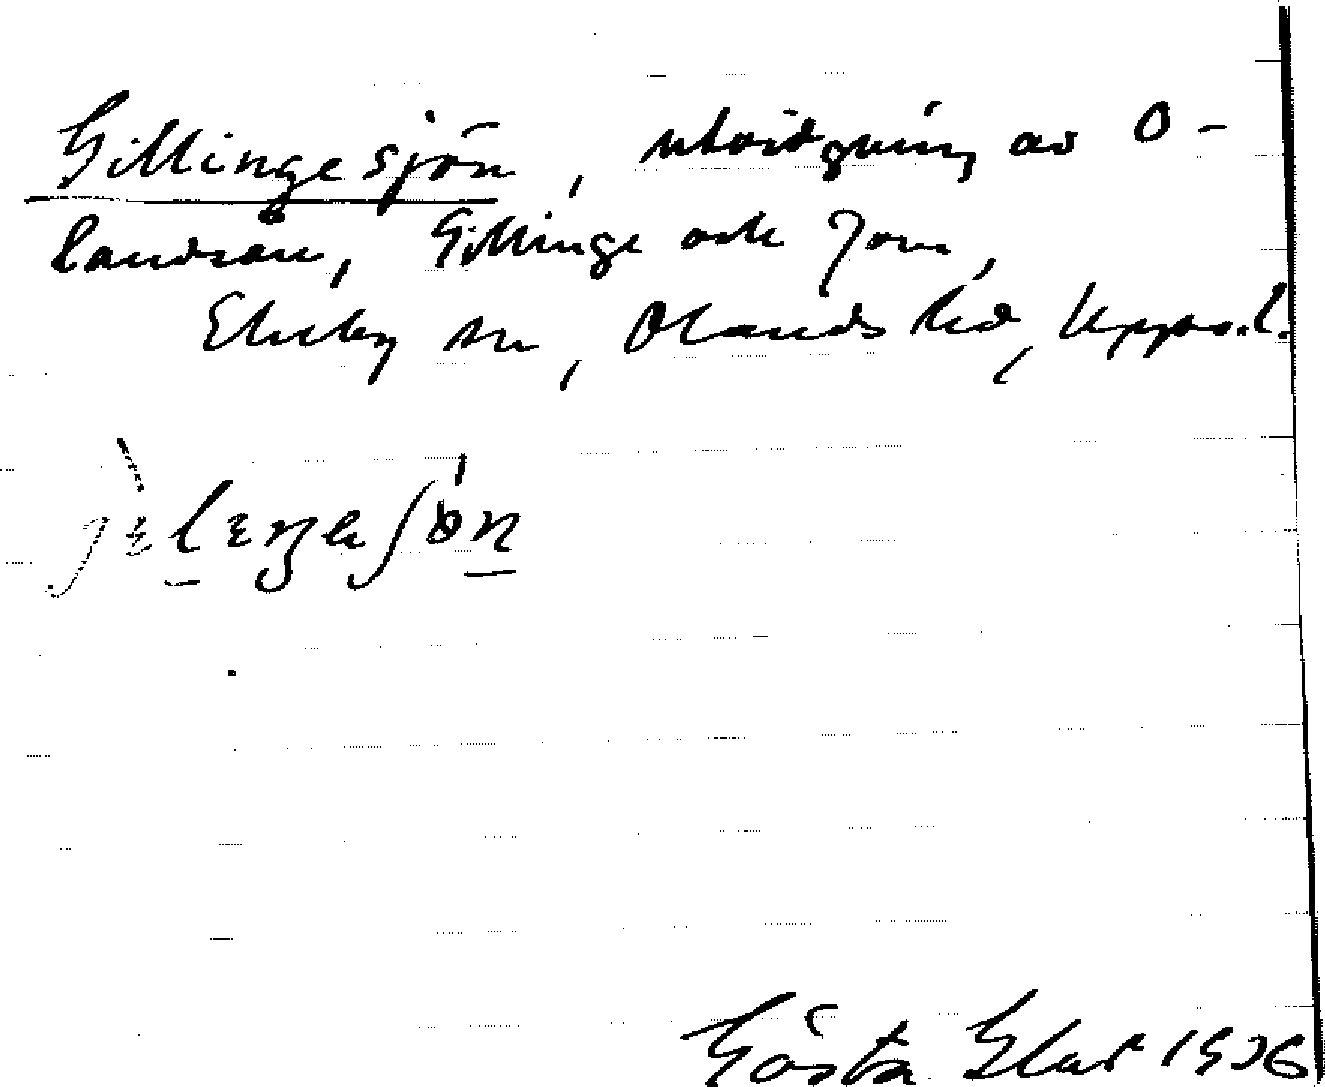 Gillingesjön, utvidgning av O-
landsån, Gillinge och
Ekeby sn, Olands hd, Upps. l.
Gösta 1936